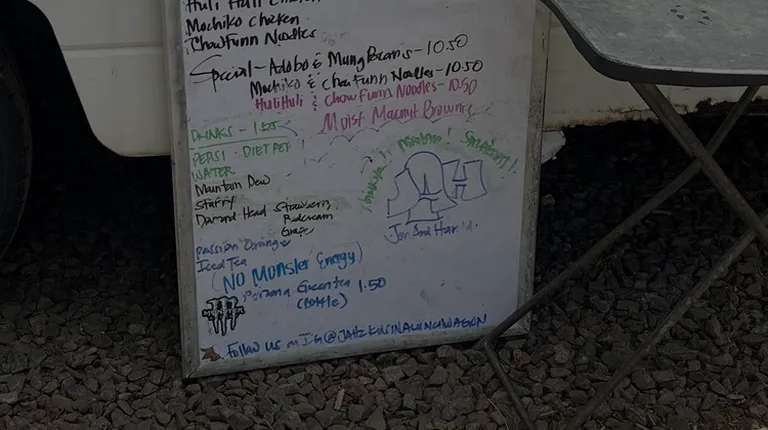 Huli Huli Chicken
Mochiko Chicken
Chow Funn Noodles
Special - Adobo & Mung Beans - 10.50
Mochiko & Chow Funn Noodles - 10.50
Huli Huli & Chow Funn Noodles - 10.50
Moist Macnut Brownies
DRINKS - 1.25
PEPSI · DIET PEPSI
WATER
Mountain Dew
Starry
Diamond Head Strawberry
Redcream
Grape
Passion Orange
Iced Tea
(NO Monster Energy)
Green tea 1.50
(bottle)
Follow us on IG @